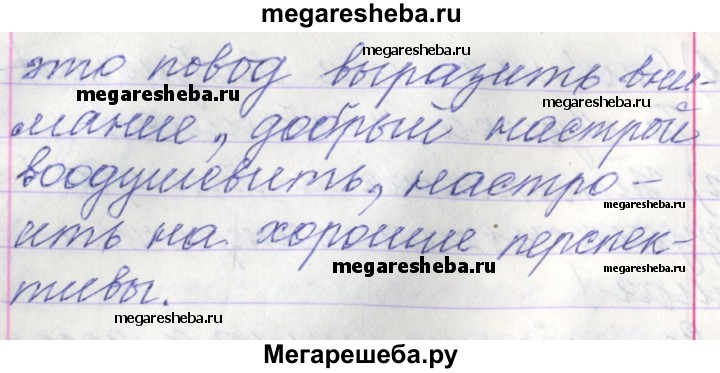 megaresheba.ru
это повод выразить вни-
megaresheba.ru
megaresheba.ru
megaresheba.ru
мание, добрый настрой
воодушевить, настро-
megaresheba.ru
ить на хорошие перспек-
megaresheba.ru
megaresheba.ru
тивы.
megaresheba.ru
Мегарешеба.ру